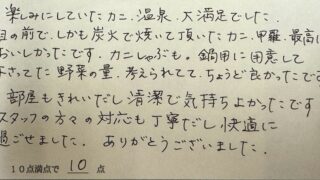 楽しみにしていたカニ、温泉、大満足でした。
目の前で、しかも炭火で焼いて頂いたカニ、甲羅、最高に
おいしかったです。カニしゃぶも。鍋用に用意して
下さってた野菜の量、考えられてて、ちょうど良かったです
部屋もきれいだし清潔で気持ちよかったです
スタッフの方々の対応も丁寧だし快適に
過ごせました。ありがとうございました。
10点満点で 10 点